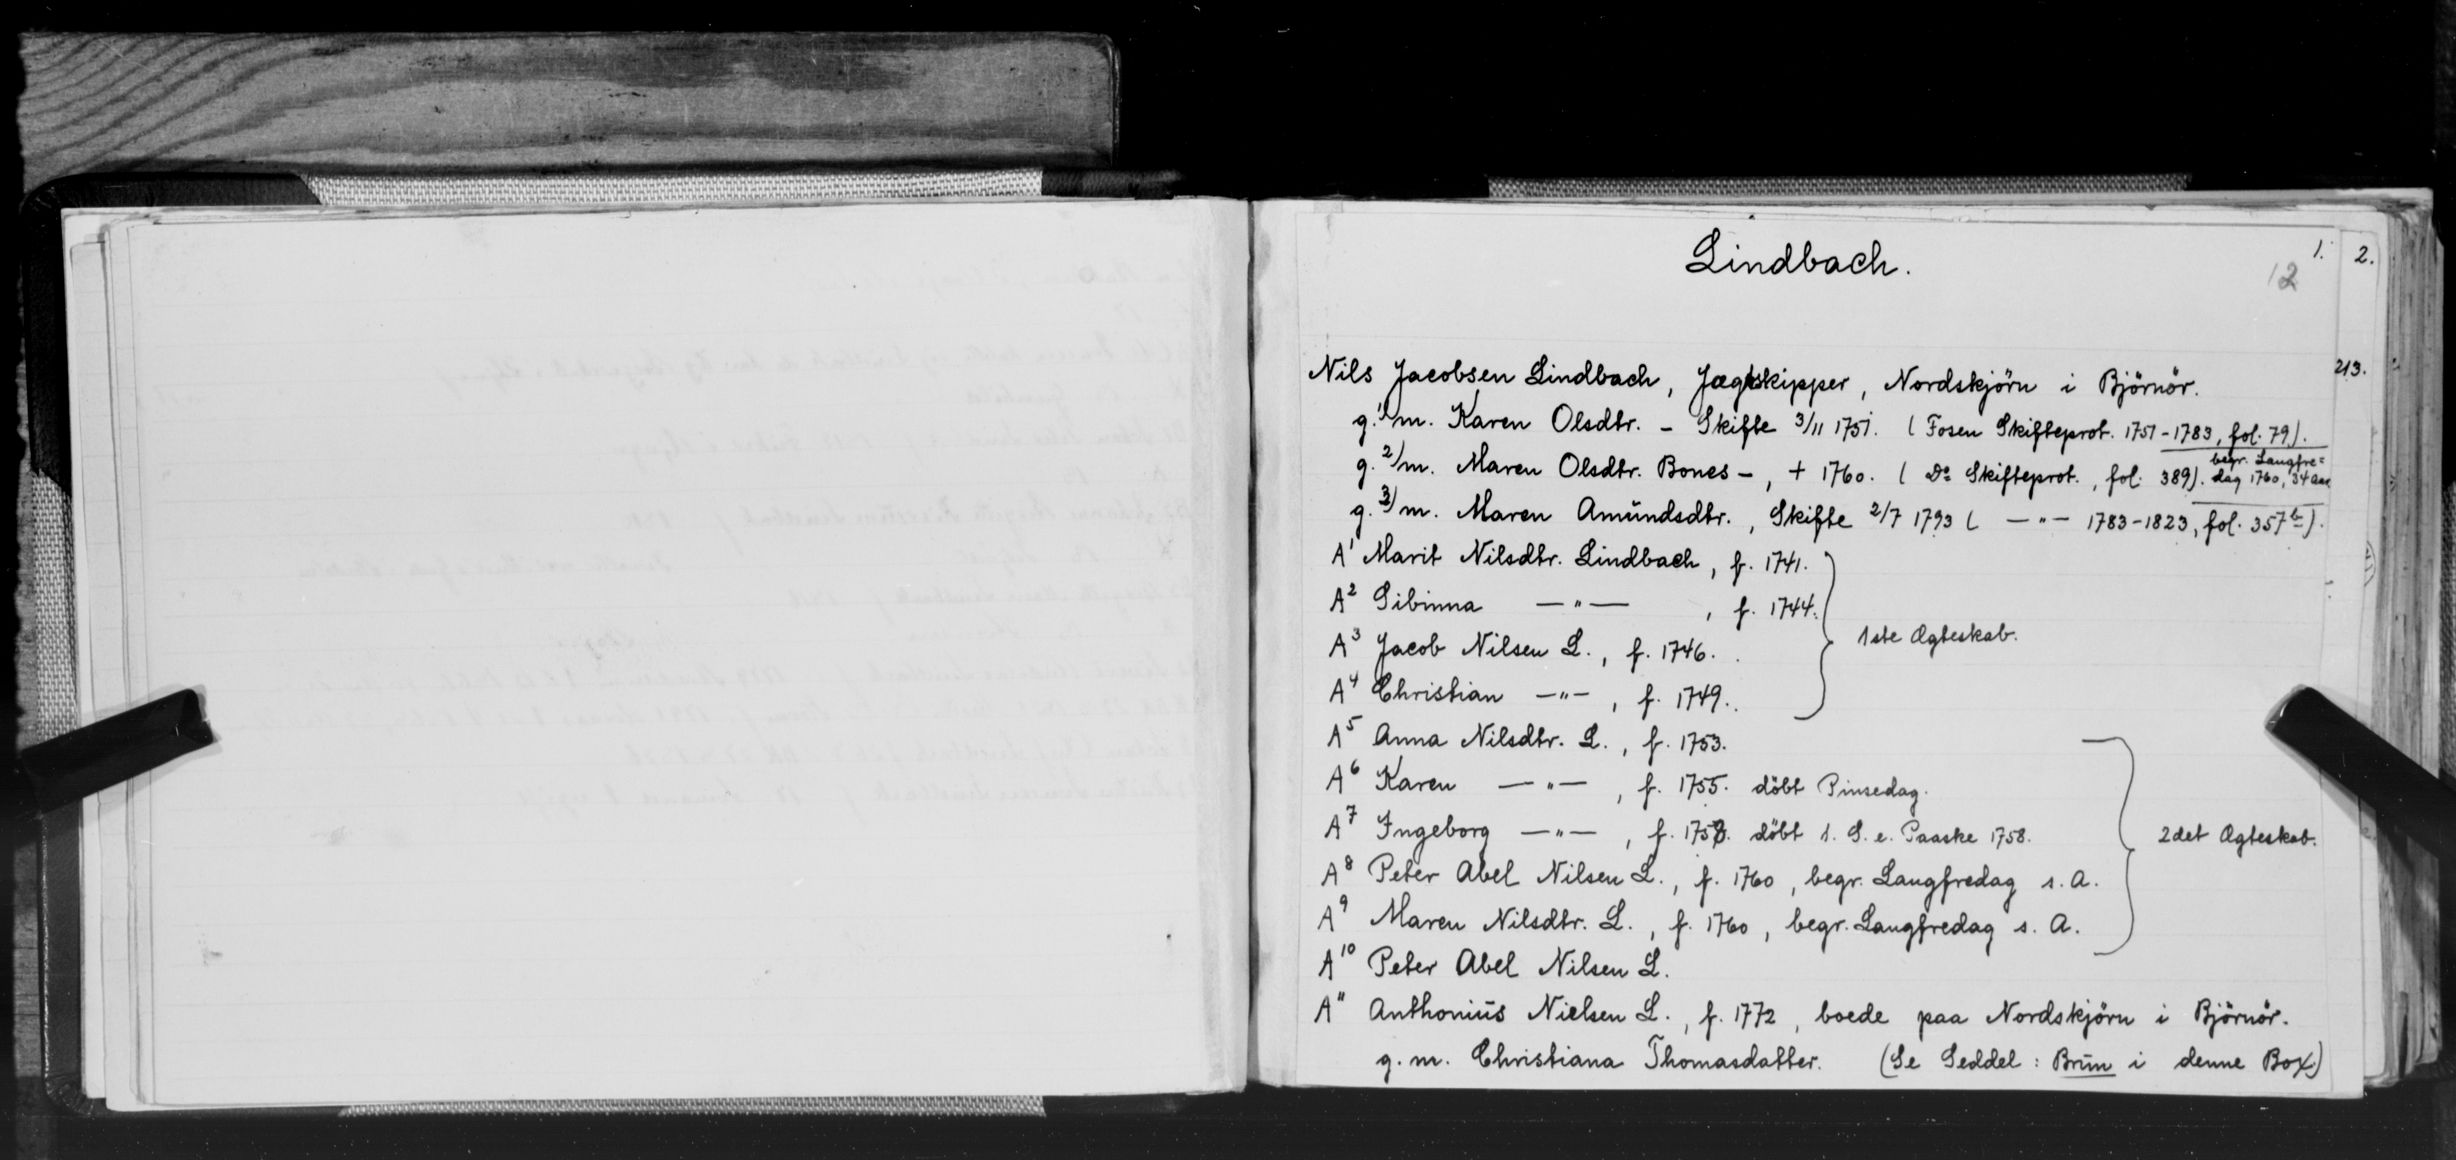 Lindbach.
1. 2.
12
Nils Jacobsen Lindbach, Jægtskipper, Nordskjörn i Björnör.
213.
g. 1) m. Karen Olsdtr. - Skifte 3/11 1751. (Fosen Skifteprot. 1751-1783, fol. 79).
g. 2) m. Maren Olsdtr. Bones -, + 1760. (Do Skifteprot., fol. 389). begr. Langfre=
dag 1760, 34 aar
g. 3) m. Maren Amündsdtr., Skifte 2/7 1793 ( —"— 1783-1823, fol. 357b).
A1 Marit Nilsdtr. Lindbach, f. 1741.
A2 Sibinna —"— , f. 1744.
A3 Jacob Nilsen L., f. 1746.
1ste Ægteskab.
A4 Christian —"—, f. 1749.
A5 Anna Nilsdtr. L., f. 1753.
A6 Karen —"—, f. 1755. döbt Pinsedag.
A7 Ingeborg —"—, f. 1758. döbt 1. S. e. Paaske 1758.
2det Ægteskab.
A8 Peter Abel Nilsen L., f. 1760, begr. Langfredag s. A.
A9 Maren Nilsdtr. L., f. 1760, begr. Langfredag s. A.
A10 Peter Abel Nilsen L.
A11 Anthoniüs Nielsen L., f. 1772, boede paa Nordskjörn i Björnör.
g. m. Christiana Thomasdatter. (Se Seddel: Brün i denne Box)